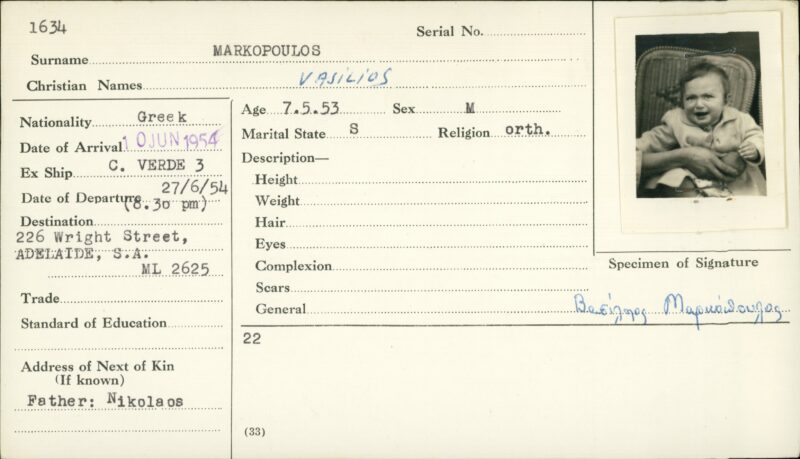 1634
Serial No.
Surname MARKOPOULOS
Christian Names VASILIOS
Nationality Greek
Date of Arrival 10 JUN 1954
Ex Ship C. VERDE 3
Date of Departure 27/6/54
(8.30 pm)
Destination
226 Wright Street,
ADELAIDE, S.A.
ML 2625
Trade
Standard of Education
Address of Next of Kin
(If known)
Father: Nikolaos
Age 7.5.53 Sex M
Marital State S Religion orth.
Description—
Height
Weight
Hair
Eyes
Complexion
Scars
General
22
(33)
Specimen of Signature
Βασίληος Μαρκόπουλος